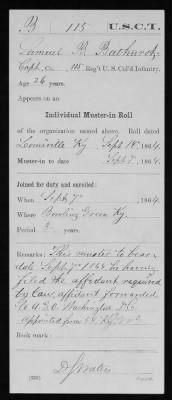 B 115 U.S.C.T.
Samuel B. Bathurst
Capt., Co. , 115 Reg't U. S. Col'd Infantry.
Age 26 years.
Appears on an
Individual Muster-in Roll
of the organization named above. Roll dated
Louisville Ky Sept 14, 1864.
Muster-in to date Sept 7, 1864.
Joined for duty and enrolled:
When Sept 7, 1864.
Where Bowling Green Ky.
Period 3 years.
Remarks: This muster to bear
date Sept 7" 1864 he having
filed the affidavit required
by law, affidavit forwarded
to A.G.O. Washington, D.C.
Appointed from Ky
Book mark:
(339)